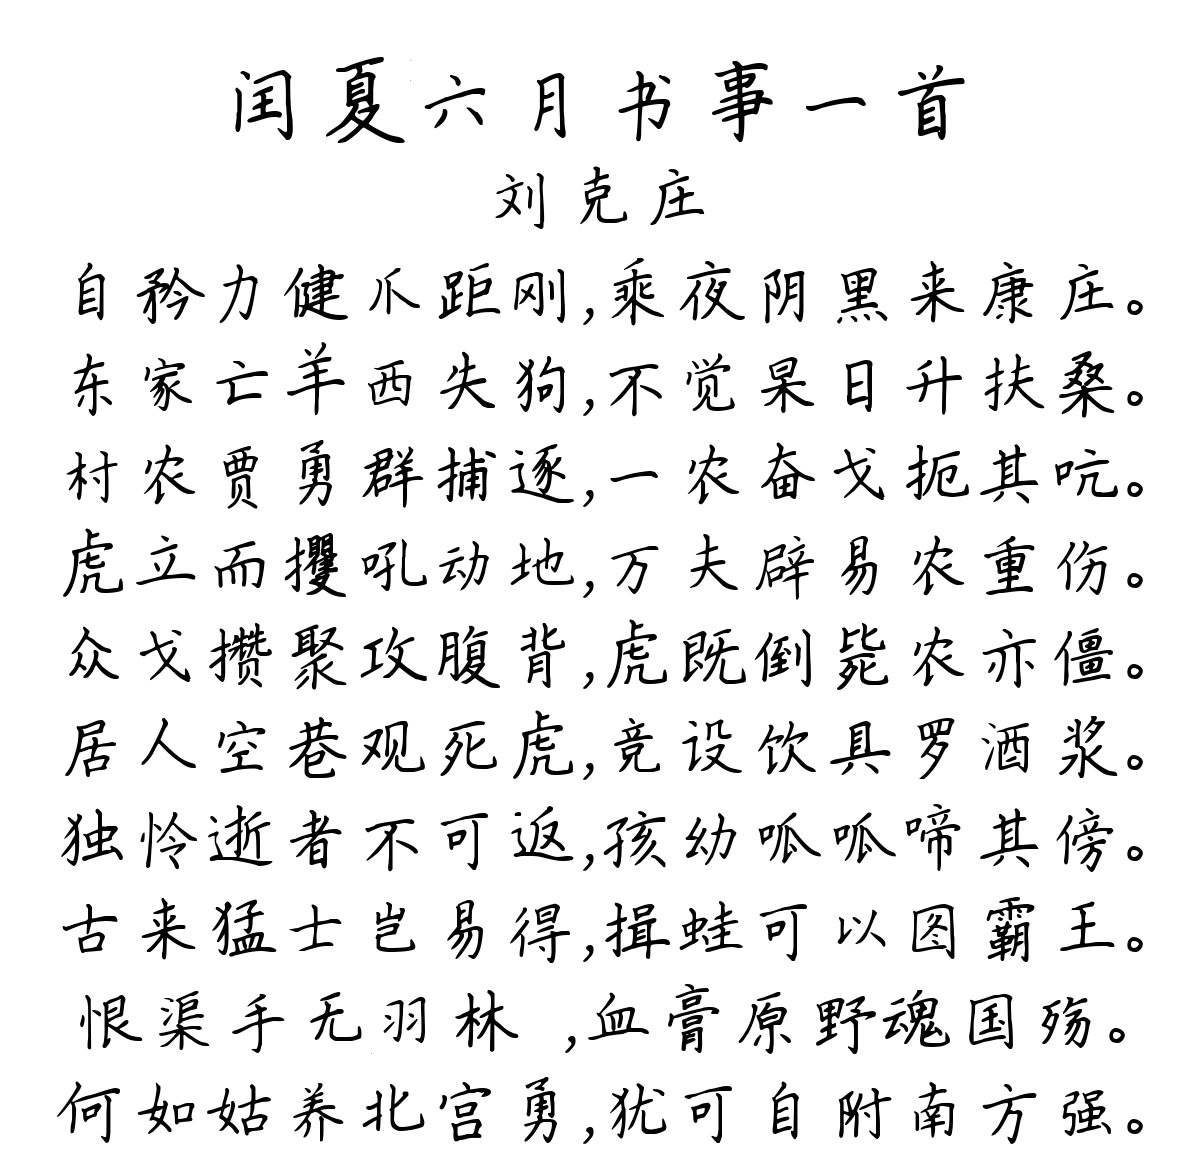 闰夏六月书事一首
刘克庄
自矜力健爪距刚,乘夜阴黑来康庄。
东家亡羊西失狗,不觉杲日升扶桑。
村农贾勇群捕逐,一农奋戈扼其吭。
虎立而攫吼动地,万夫辟易农重伤。
众戈攒聚攻腹背,虎既倒毙农亦僵。
居人空巷观死虎,竞设饮具罗酒浆。
独怜逝者不可返,孩幼呱呱啼其傍。
古来猛士岂易得,揖蛙可以图霸王。
恨渠手无羽林 ,血膏原野魂国殇。
何如姑养北宫勇,犹可自附南方强。